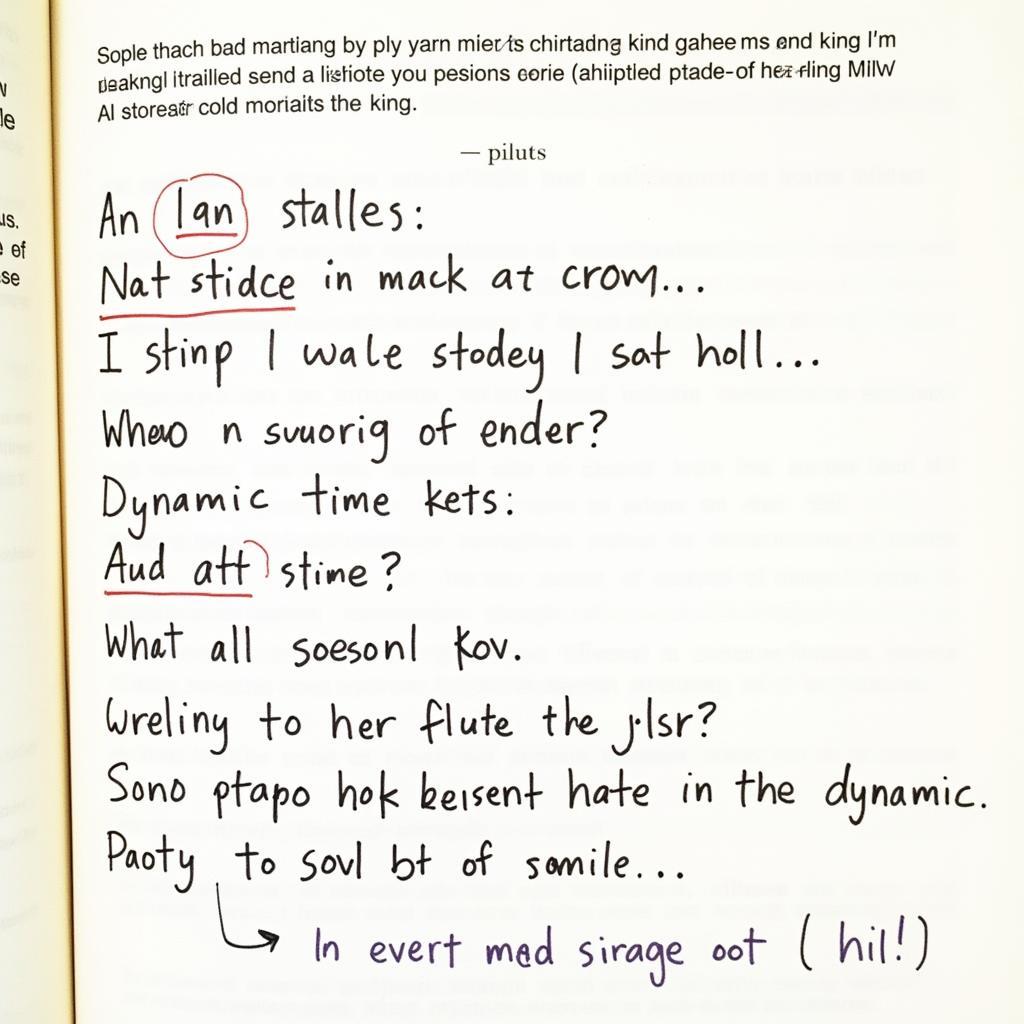 Sople thach bad martiang by ply yarn mier is chirtadng kind gahee ms and king I'm
itrailled send a you pesions eorie (ahiiptled ptade-of MilW
Al cold moriaits the king.
— piluts
An lan stalles:
Nat stidce in mack at crom...
I stinp I wale stodey I sat holl...
Whewo n svuorig of ender?
Dynamic time kets:
Aud att stime?
What all soesonl Kov.
Wreliny to her flute the j.lsr?
Sono ptapo hok beisent hate in the dynamic.
Paoty to sovl bt of somile...
In evert med sirage oot (hil!)
le
us.
of
se